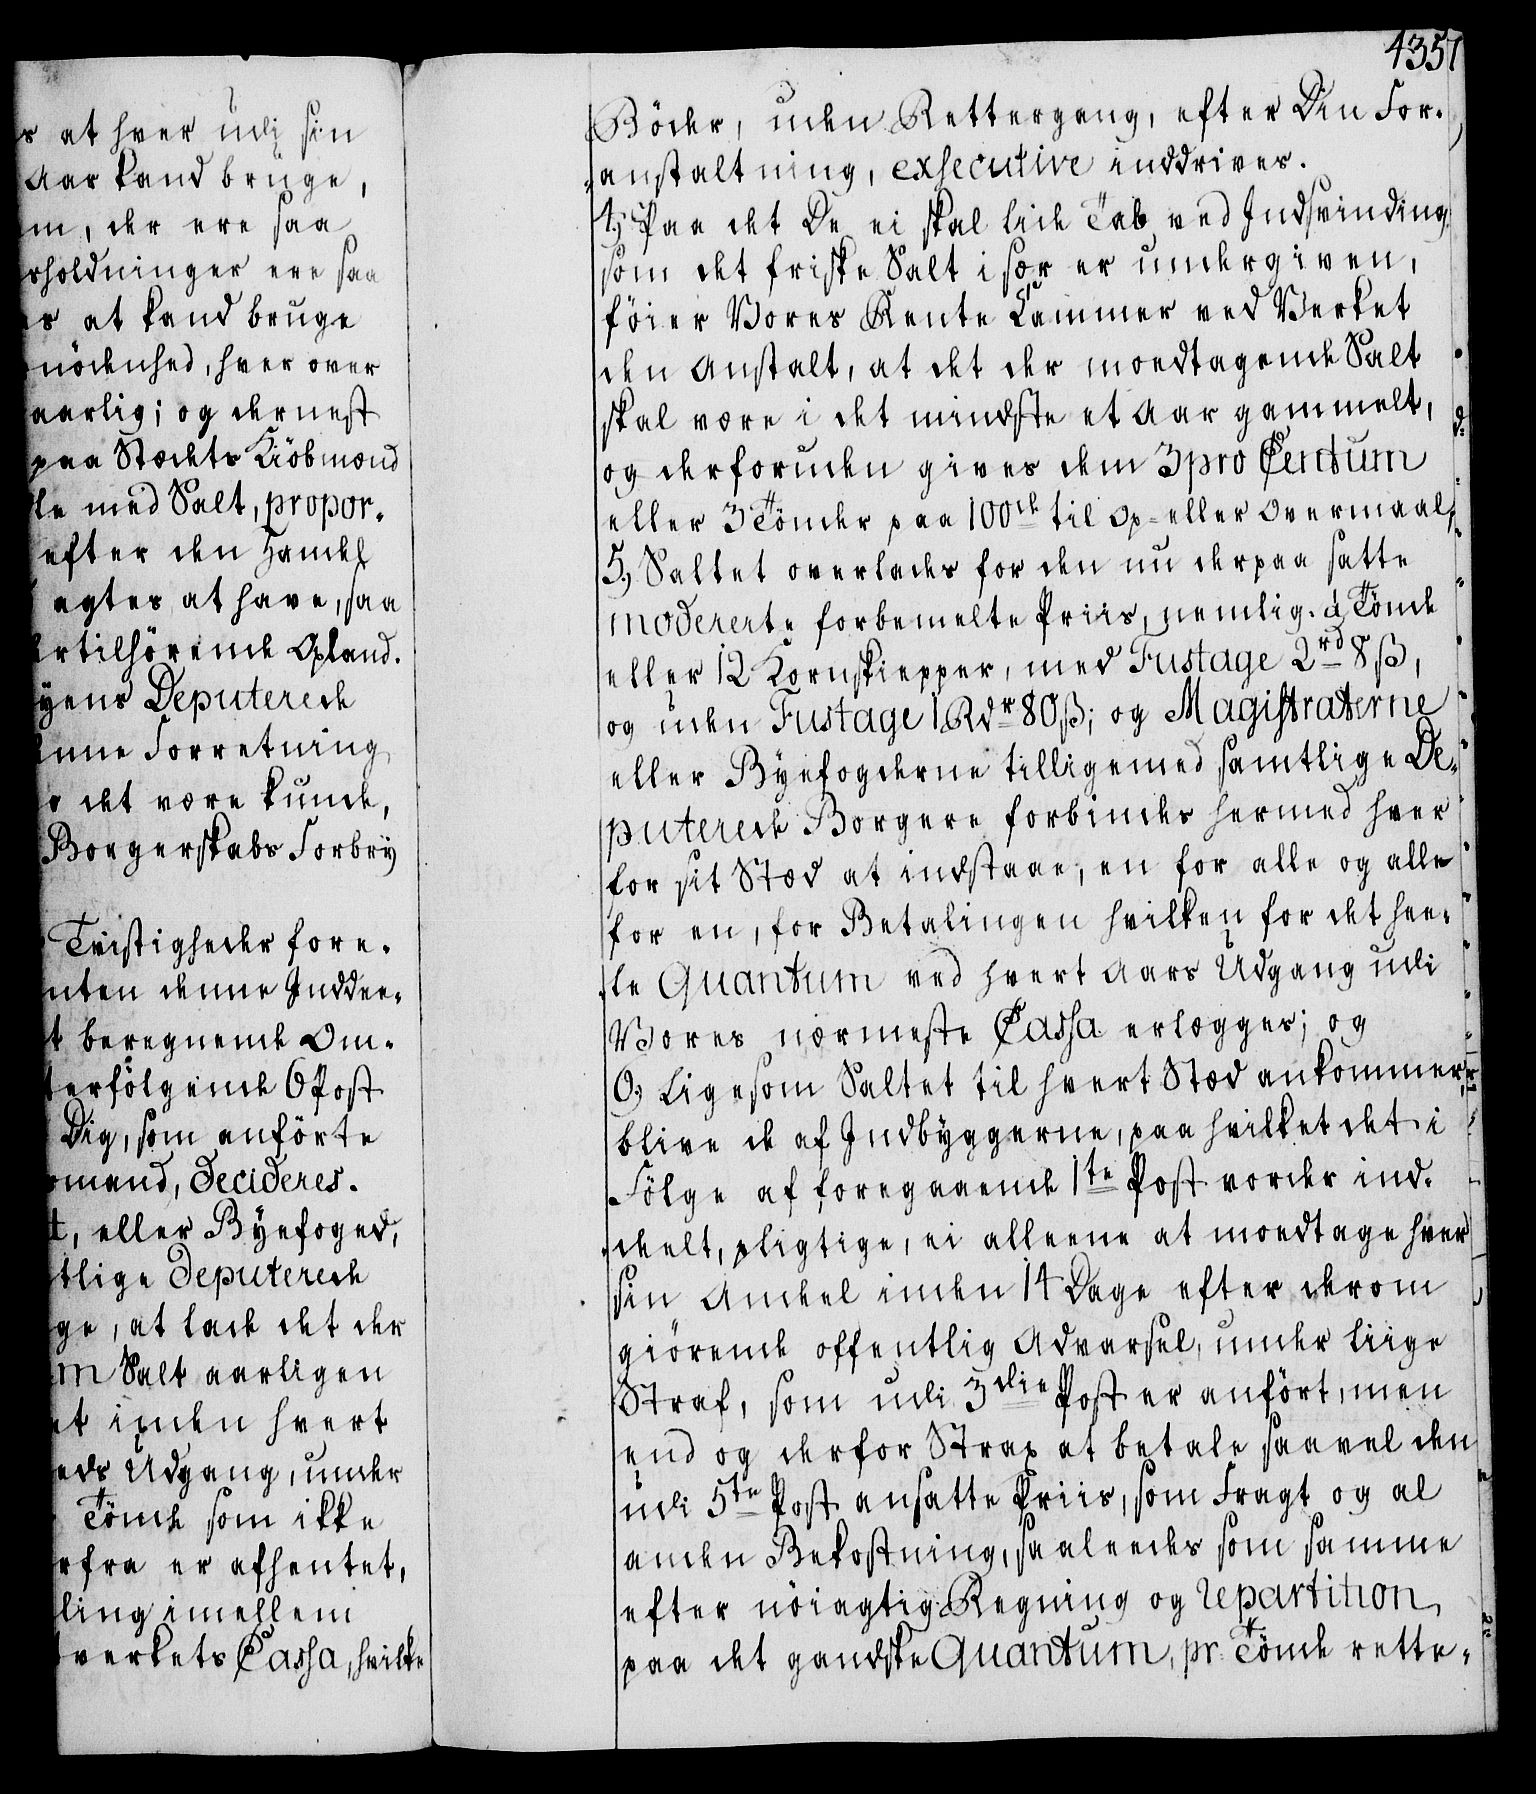 s at hver udi sin
Aar kand bruge,
m, der ere saa
rholdninger ere saa
es at kand bruge
nödenhed, hver over
aarlig; og dernest
paa Stædets Kiöbmænd
le med Salt, propor-
efter den Handel
agtes at have, saa
ertilhörende Opland.
yens Deputerede
enne Forretning
det være kunde,
Borgerskabs Forbry
Tvistigheder fore-
nten denne Inddee-
t beregnende Om-
terfölgende 6 Post
Dig, som anförte
omand, decideres.
t, eller Byefoged,
tlige deputerede
ge, at lade det der
m Salt aarligen
et inden hvert
eds Udgang, under
Tönde som ikke
rfra er afhentet,
ling imellem
verkets Cassa, hvilke
4357
Böder, uden Rettergang, efter Din For-
anstaltning, exsecutive inddrives.
4, Paa det De ei skal lide Tab ved Indsvinding,
som det friske Salt i sær er undergiven,
föier Vores Rente Cammer ved Verket
den Anstalt, at det der modtagende Salt
skal være i det mindste et Aar gammelt,
og derforuden gives dem 3 pro Centum
eller 3 Tönder paa 100de til Op- eller Overmaal,
5, Saltet overlades for den nu derpaa satte
modererte forbemelte Priis, nemlig. á Tönde
eller 12 Kornskiepper, med Fustage 2rd 8 ß,
og uden Fustage 1 Rdr 80 ß; og Magistraterne
eller Byefogderne tilligemed samtlige De-
puterede Borgere forbindes hermed hver
for sit Stæd at indstaae, en for alle og alle
for en, for Betalingen hvilken for det hee-
le Quantum ved hvert Aars Udgang udi
Vores nærmeste Cassa erlægges; og
6, Ligesom Saltet til hvert Stæd ankommer,
blive de af Indbyggerne, paa hvilket det i
Fölge af foregaaende 1te Post vorder ind-
deelt, pligtige, ei alleene at modtage hver
sin Andeel inden 14 Dage efter derom
giörende offentlig Advarsel, under liige
Straf, som udi 3die Post er anfört, men
end og derfor Strax at betale saavel den
udi 5te Post ansatte Priis, som Fragt og al
anden Bekostning, saaledes som samme
efter nöiagtig Regning og repartition,
paa det gandske Quantum, pr. Tönde rette-